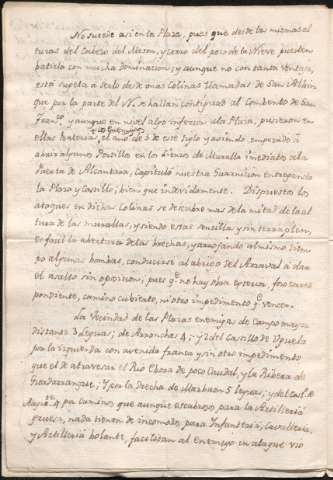 No sucede asi en la Plaza, pues que desde las mismas al
turas del Cabezo del Meson, y Cerro del poço de la Nieve pueden
batirla con mucha dominacion; y aunque no con tanta ventaja,
está sugeta à serlo desde unas Colinas llamadas de San Albin
que por la parte del N. se hallan contiguas al Combento de San
Fran.co, y aunque en nivel algo inferior ala Plaza, pusieron en
ellas baterias, los enemigos el año de 5 de este siglo y asiendo empezado à
abrir algunos Portillo en la Lienzo de Muralla imediato ala
Puerta de Alcantara, Capituló nuestra Guarnicion entregando
la Plaza y Castillo, bien que indevidamente. Dispuestos los
ataques en dichas Colinas se descubre mas de la mitad de la al
tura de las murallas, y siendo estas sencillas y sin terraplen,
es facil la abertura de las brechas, y arrojando al mismo tiem
po algunas bombas, conducirse al abrigo del Arraval à dar
el asalto sin oposicion, pues q.e no hay obra exterior, foso corres
pondiente, camino cubierto, ni otro impedimento q.e vencer.
La Vecindad de las Plazas enemigas de Campomayor
distante 3 Leguas; de Arronches 4; y del Castillo de
por la izquierda con avenida franca y sin otro impedimento
que el de atravesar el Rio Xbora de poco Caudal, y la Rivera de
; Y por la derecha de Marbaon 5 leguas; y del Cast.o de
4 p.r caminos que aunque escabroso para la Artilleria
gruesa, nada tienen de incomodo para Infanteria, Cavalleria,
y Artilleria bolante, facilitan al Enemigo un ataque vio